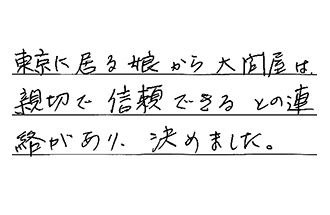 東京に居る娘から大問屋は、
親切で信頼できるとの連
絡があり、決めました。